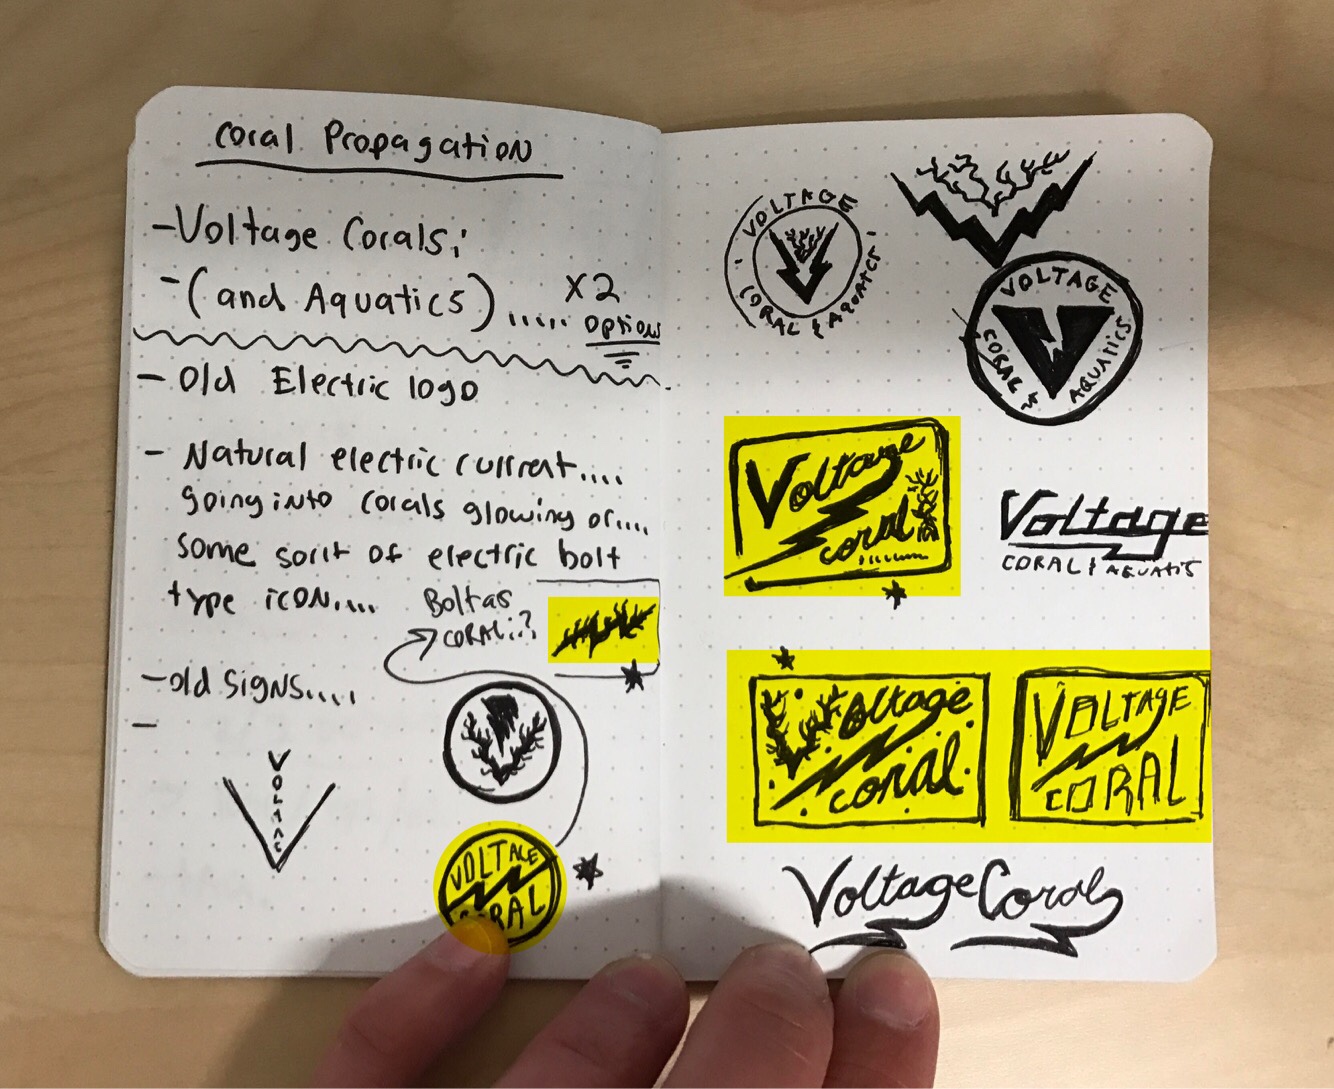 Coral Propagation
- Voltage Corals;
- (and Aquatics)..... x2
options
- Old Electric logo
- Natural electric current....
going into corals glowing or....
some sort of electric bolt
type icon....
Bolt as
CORAL..?
- old signs.....
-
VOLTAG
VOLTAGE
CORAL
VOLTAGE
CORAL & AQUATICS
VOLTAGE
CORAL & AQUATICS
Voltage
coral
Voltage
CORAL & AQUATICS
Voltage
coral
VOLTAGE
CORAL
Voltage Corals